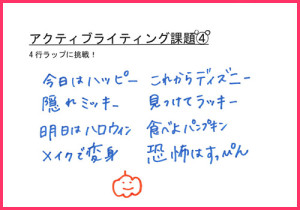 アクティブライティング課題④
4行ラップに挑戦！
今日はハッピー これからディズニー
隠れミッキー 見つけてラッキー
明日はハロウィン 食べよパンプキン
メイクで変身 恐怖はすっぴん